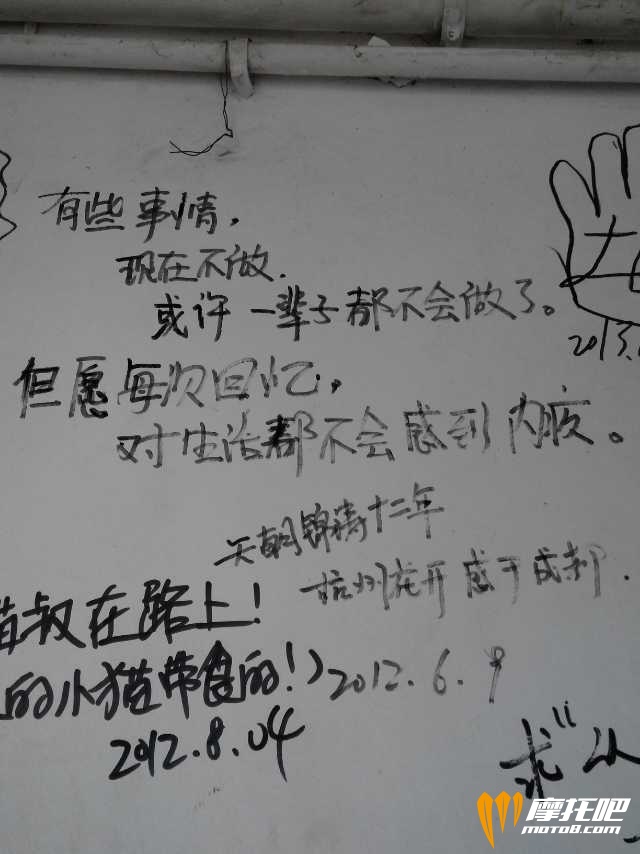 有些事情,
现在不做.
或许一辈子都不会做了。
但愿每次回忆,
对生活都不会感到内疚。
天朝锦涛十二年
杭州 开 感于成都.
叔在路上!
的小猫带食的!)
2012.6.9
2012.8.04
2013.
求"
摩托吧
moto8.com